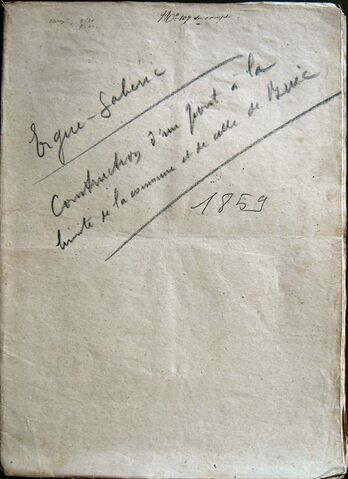 N° 107 du
Ergué-Gabéric
Construction d'un pont à la
limite de la commune et de celle de Briec
1859